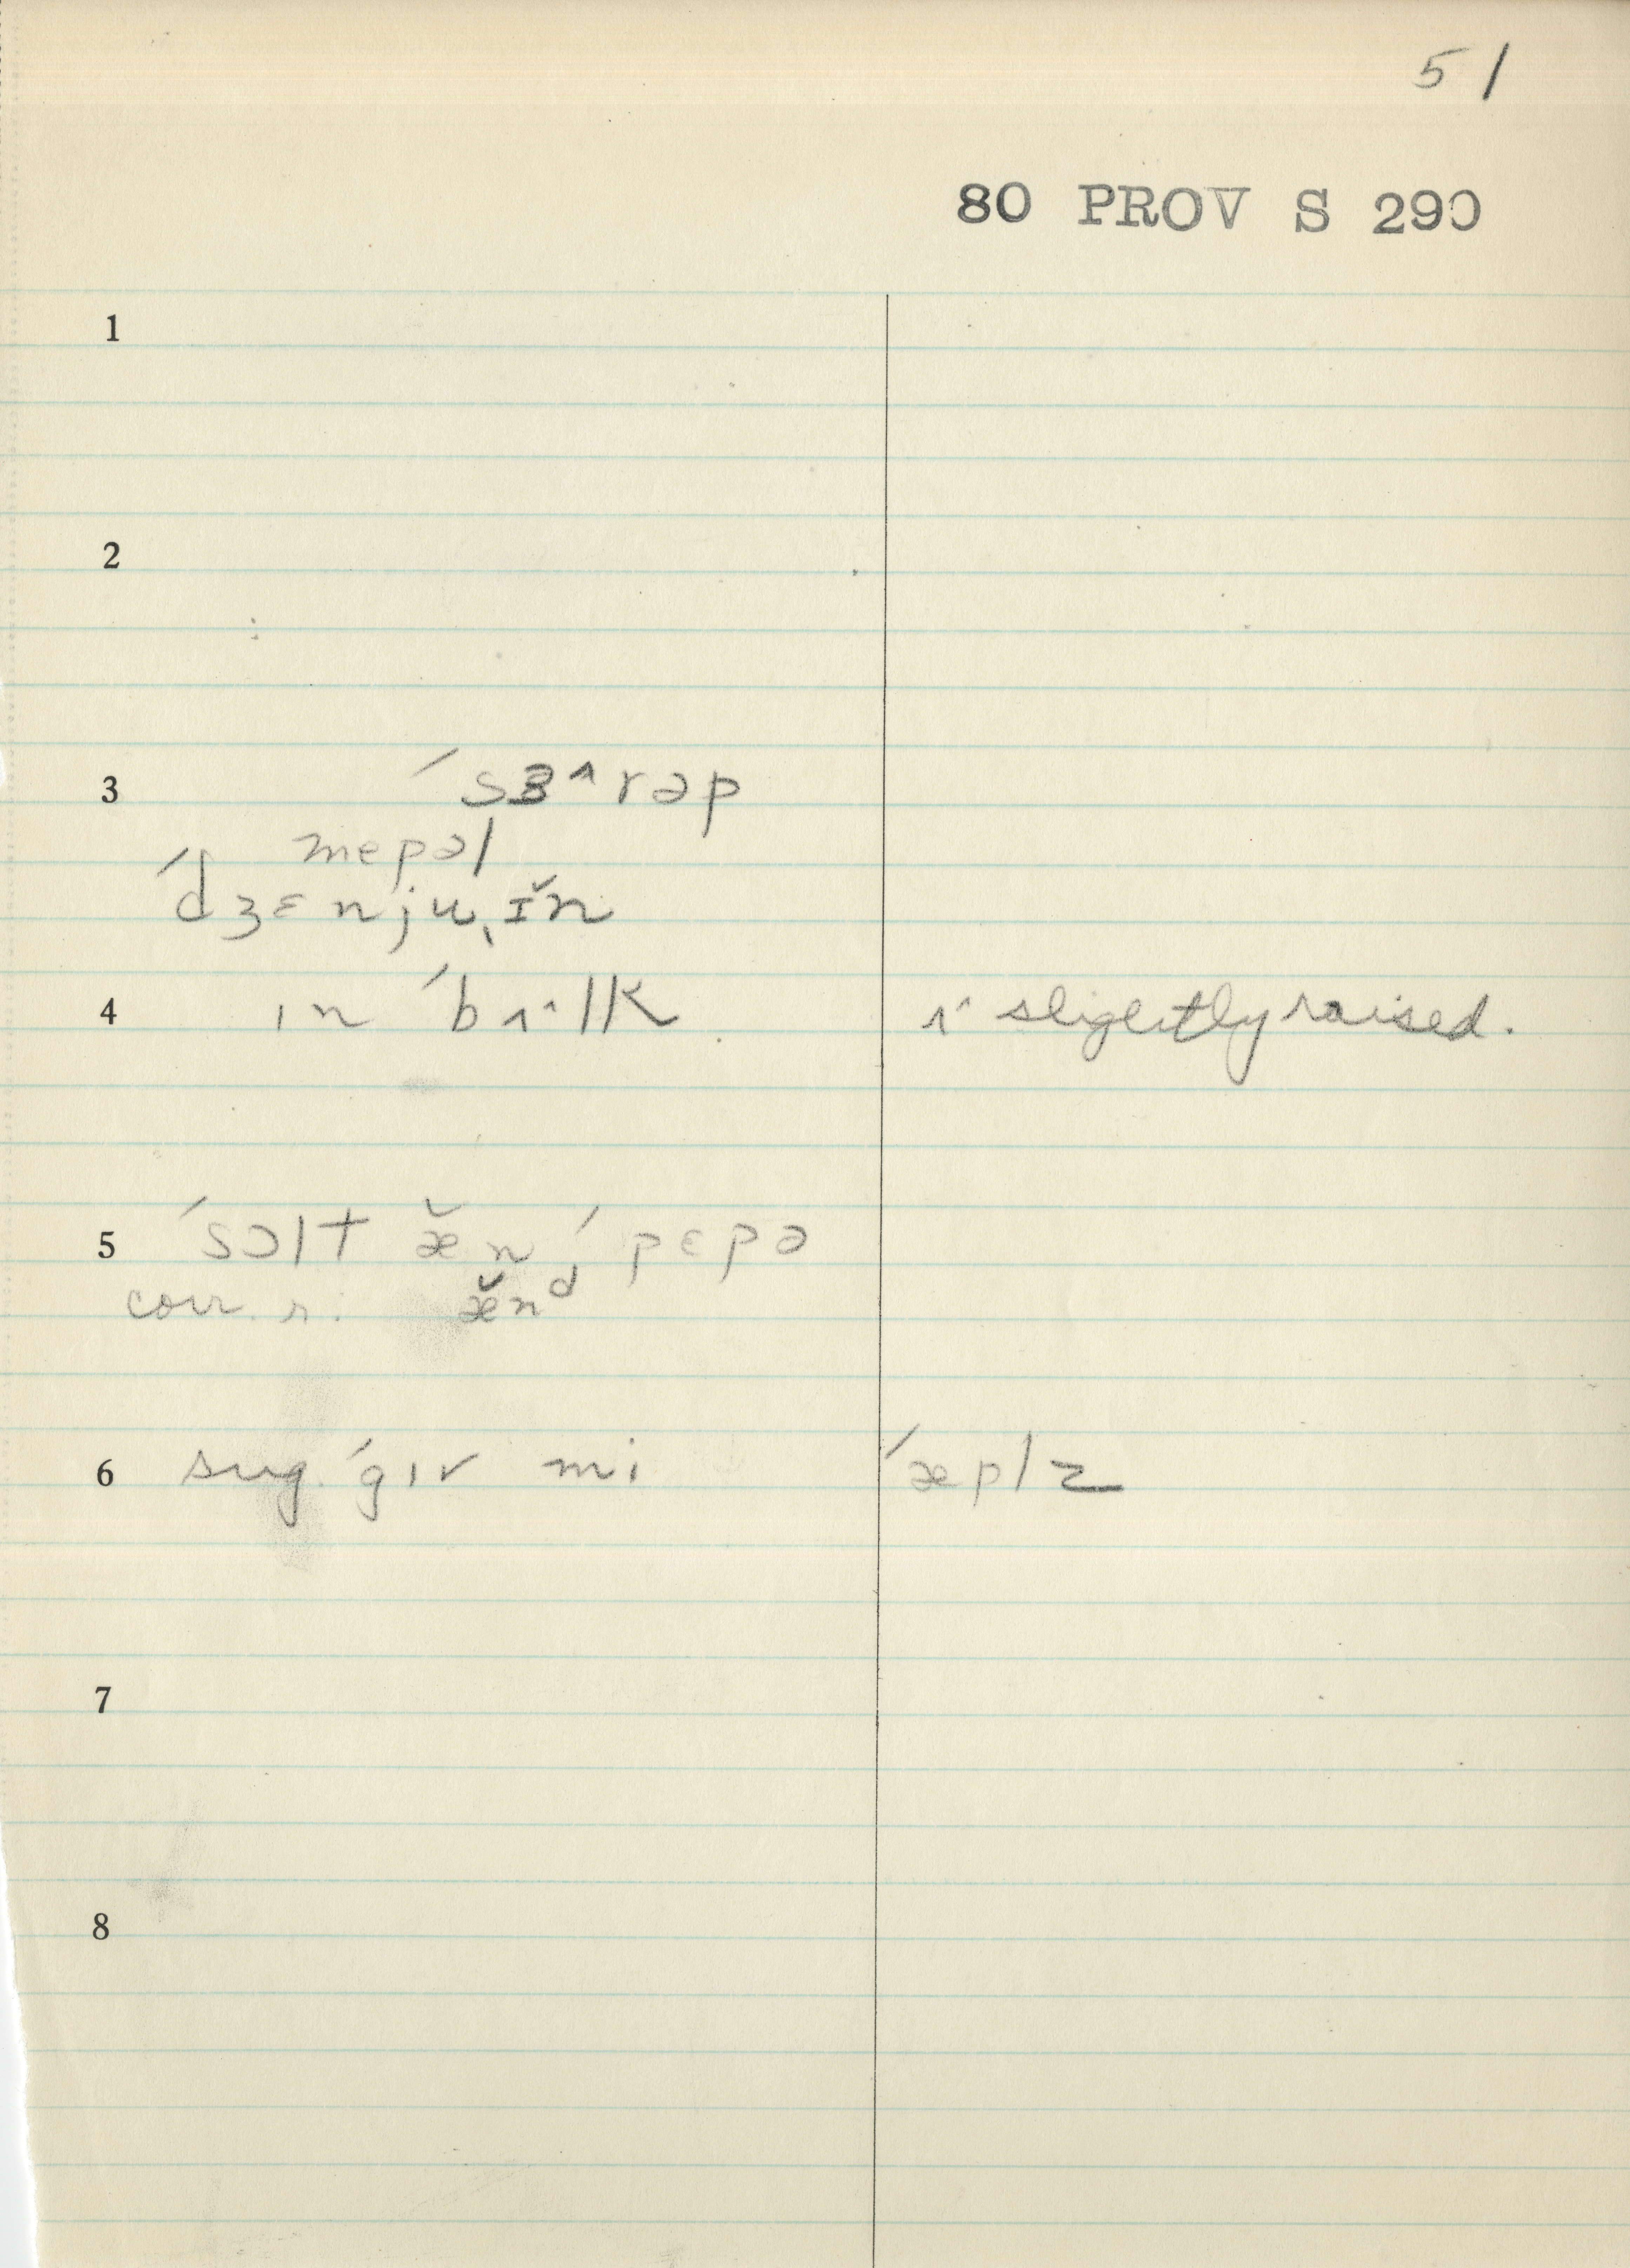 51
80 PROV S 290
1
2
3 ´sɜ^rəp
mepəl
´dʒɛnju,ɪ̆n
4 ɪn ´bʌ^lk ʌ^ slightly raised.
5 ´sɔlt æ̆n ´pɛpə
corr. r: æ̆nᵈ
6 sug. ´gɪv mi ´æplz
7
8